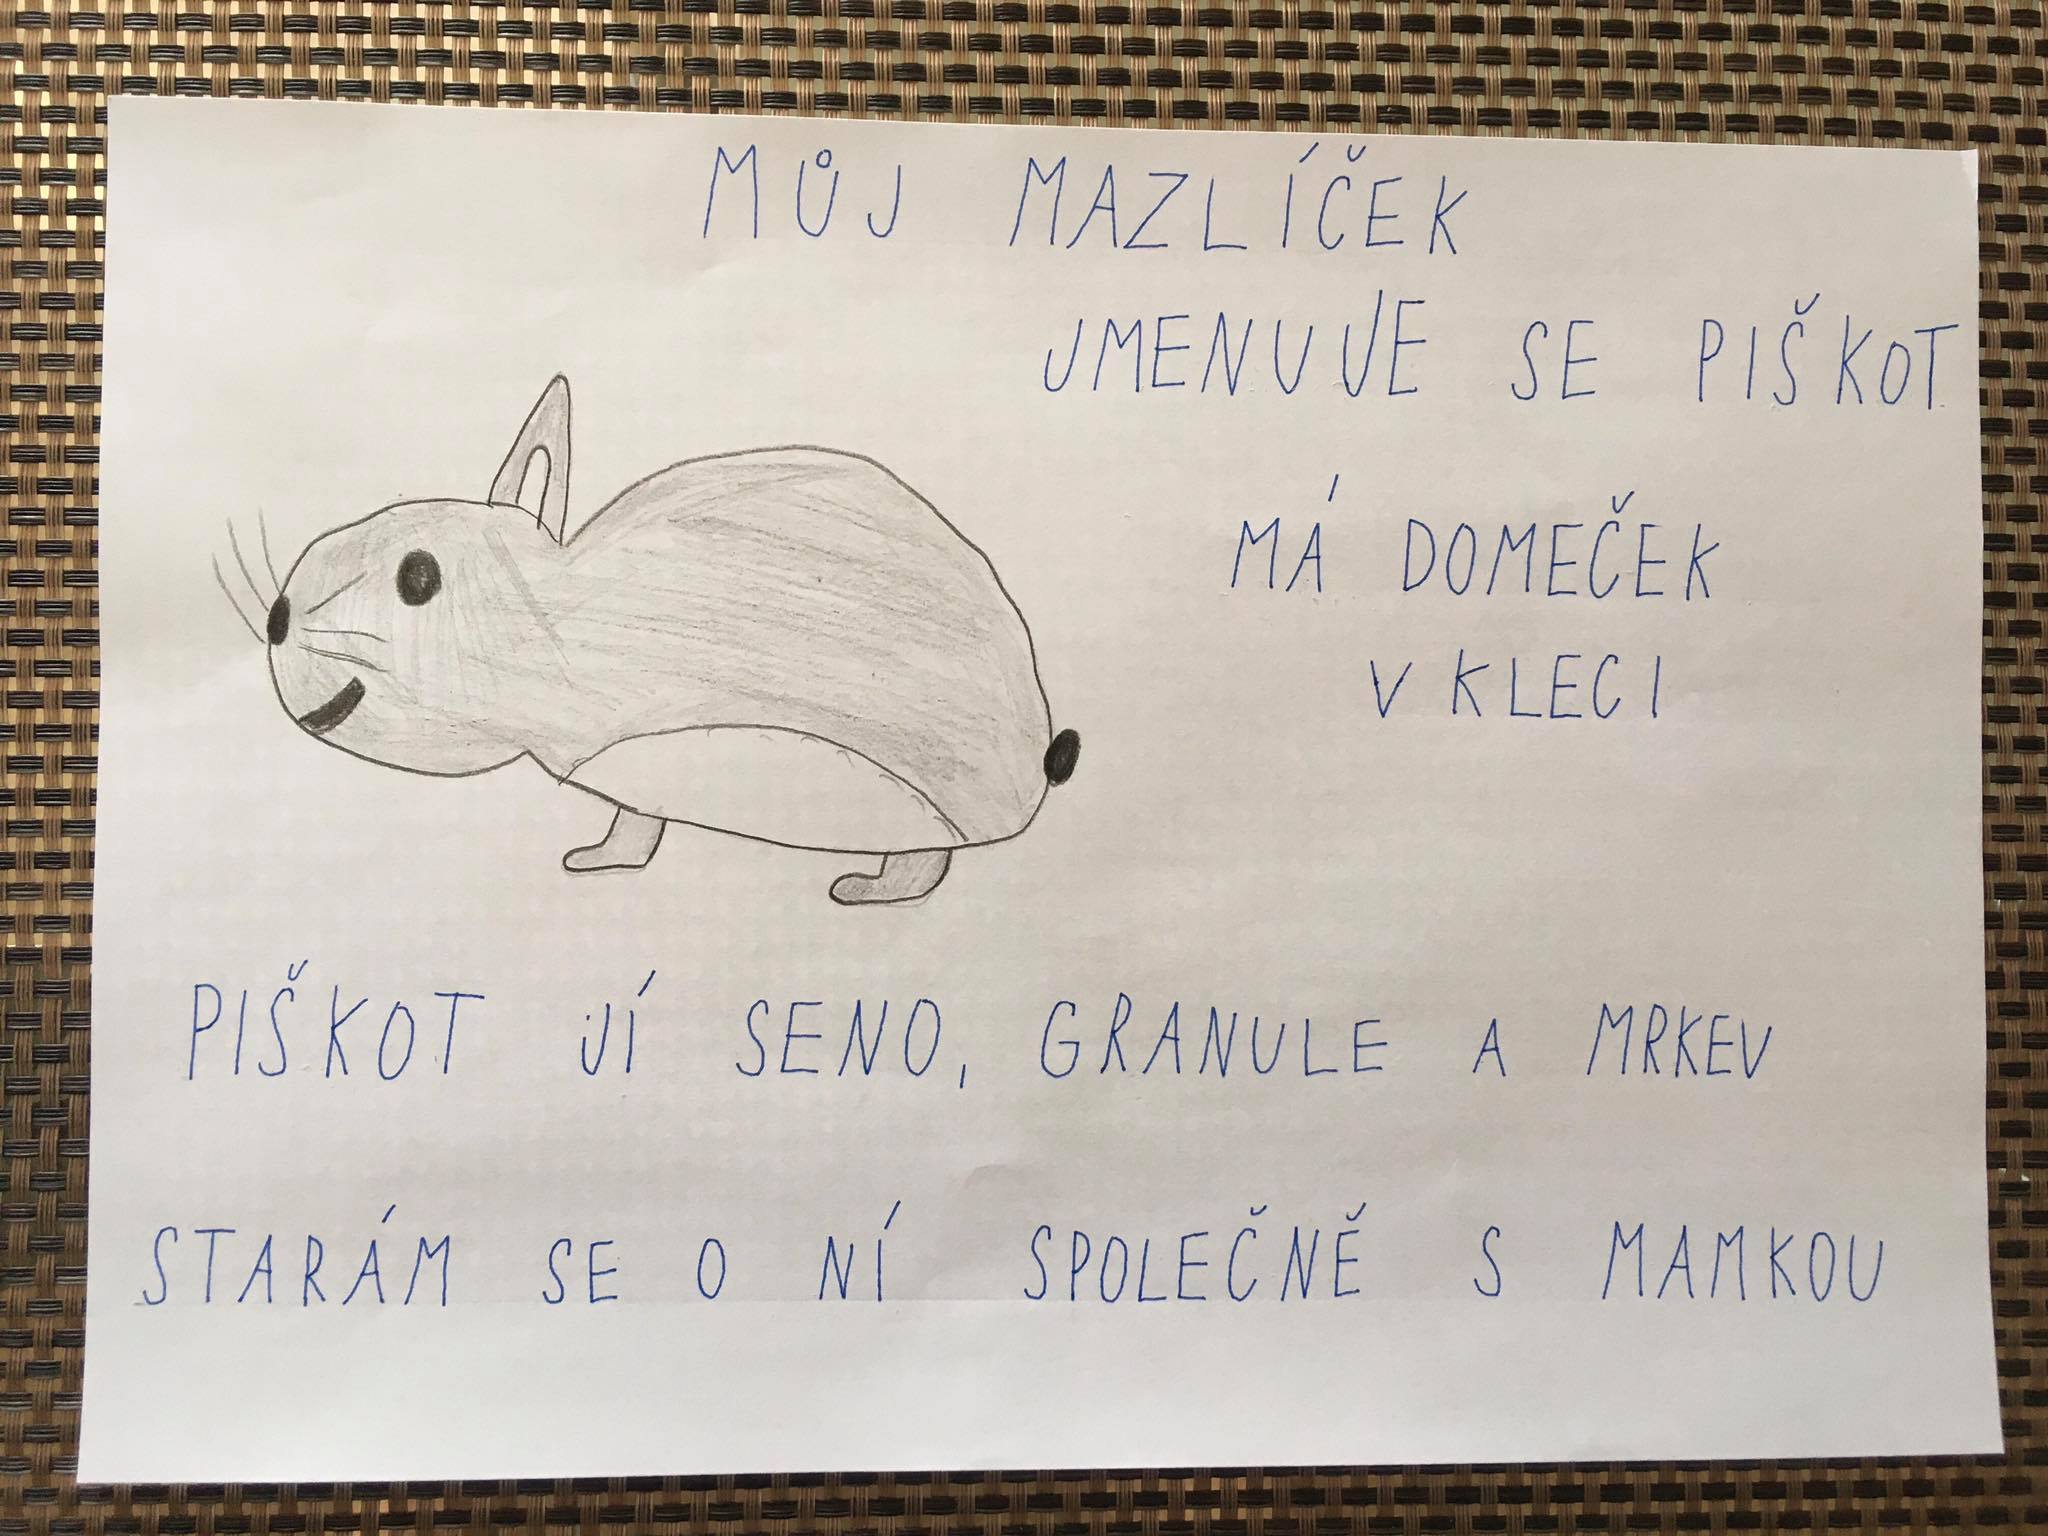 MŮJ MAZLÍČEK
JMENUJE SE PIŠKOT
MÁ DOMEČEK
V KLECI
PIŠKOT JÍ SENO, GRANULE A MRKEV
STARÁM SE O NÍ SPOLEČNĚ S MAMKOU